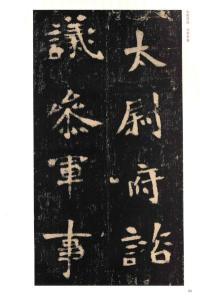 太尉府諮
議叅軍事